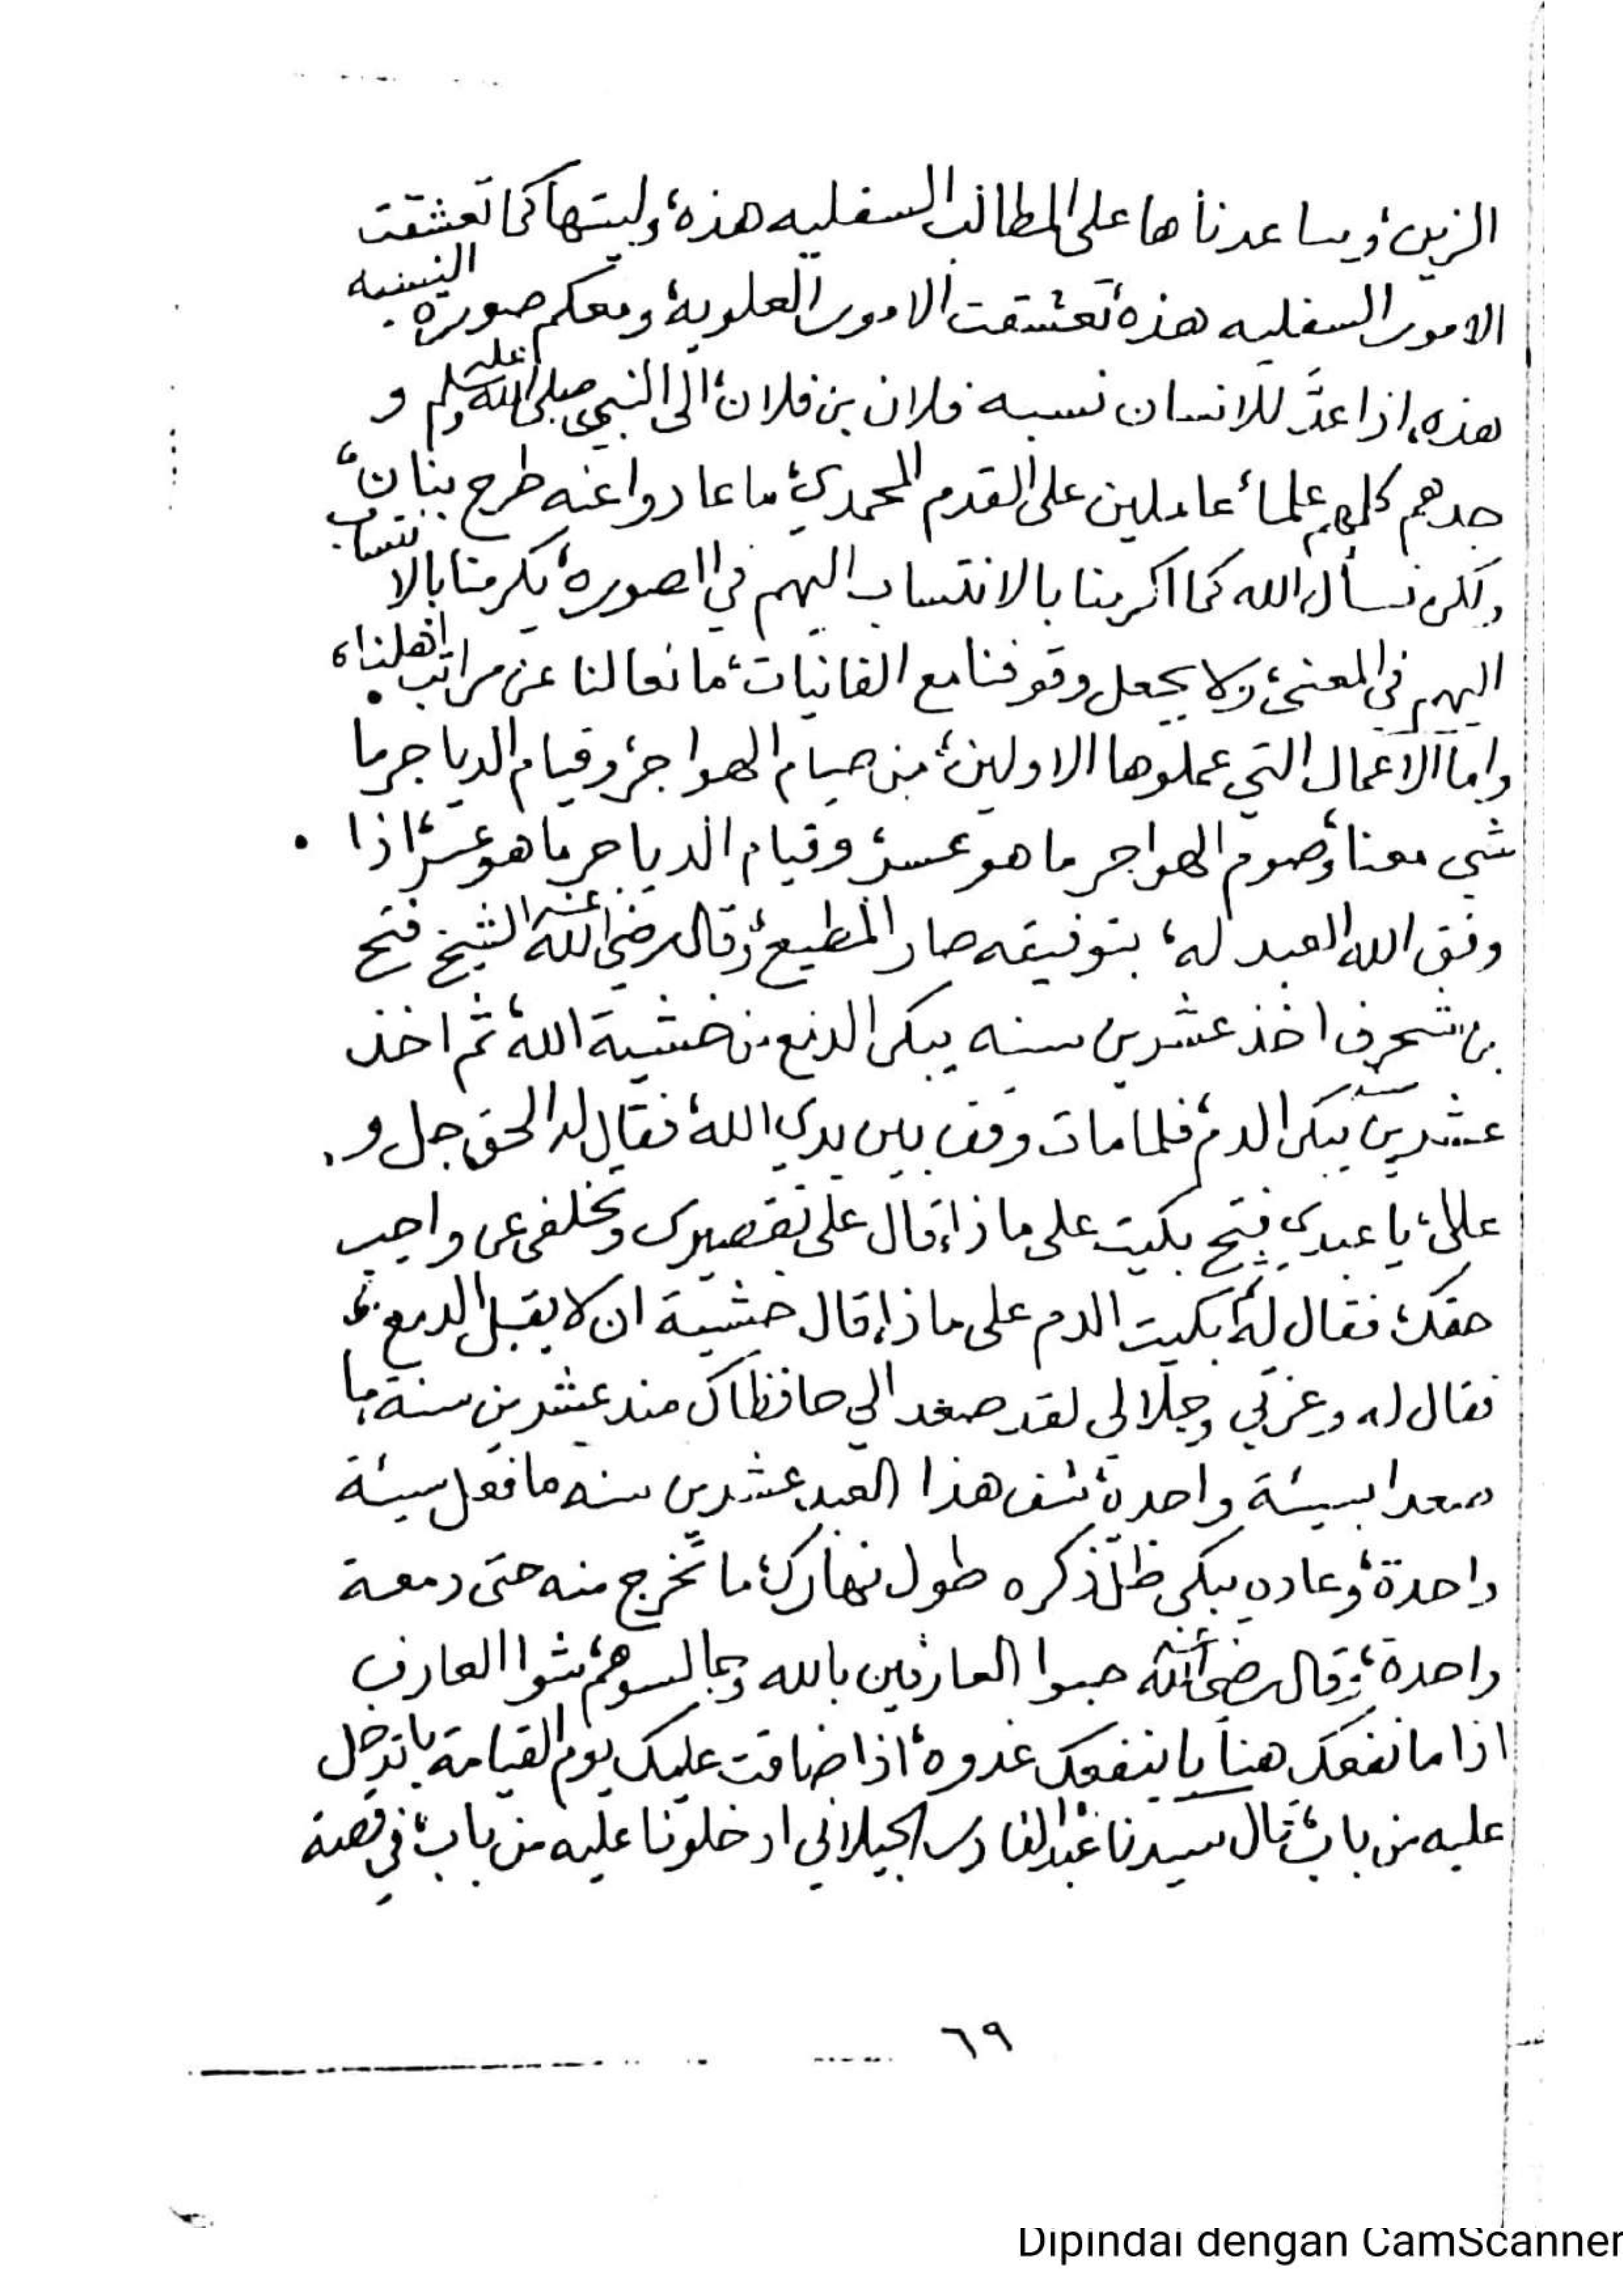 الزين، ويساعدناها على المطالب السفليه هذه، وليتها كما تعشقت
الامور السفليه هذه، تعشقت الامور العلوية، ومعكم صورة النسبه
هذه، اذا عدَّ للانسان نسبه فلان بن فلان، الى النبي صلى الله عليه وسلم و
جدهم كلهم علماء عاملين على القدم المحمدي، ما عادوا عنه طرح بنان،
ولكن نسأل الله كما اكرمنا بالانتساب اليهم في الصورة، يكرمنا بالانتساب
اليهم في المعنى، ولا يجعل وقوفنا مع الفانيات، مانعا لنا عن مراتب اهلنا،
واما الاعمال التي عملوها الاولين، من صيام الهواجر، وقيام الدياجر ما
شي معنا، وصوم الهواجر ما هو عسر، وقيام الدياجر ما هو عسر، اذا
وفق الله العبد له، بتوفيقه صار المطيع، وقال رضي الله عنه الشيخ فتح
بن شحرف اخذ عشرين سنه يبكى الدمع من خشية الله، ثم اخذ
عشرين سنه يبكى الدم، فلما مات وقف بين يدي الله، فقال له الحق جل و
علا، يا عبدي فتح بكيت على ماذا، قال على تقصيرى وتخلفى عن واجب
حقك، فقال له، بكيت الدم على ماذا، قال خشية ان لا يقبل الدمع،
فقال له وعزتي وجلالى لقد صعد الي حافظاك منذ عشرين سنة، ما
صعدا بسيئة واحدة، شف هذا العبد عشرين سنه ما فعل سيئة
واحدة، وعاده يبكى ظل ذكره طول نهارك، ما تخرج منه حتى دمعة
واحدة، وقال رضي الله عنه حبوا العارفين بالله وجالسوهم، شوا العارف
اذا ما نفعك هنا با ينفعك غدوه، اذا ضاقت عليك يوم القيامة با تدخل
عليه من باب، قال سيدنا عبد القادر الجيلاني ادخلونا عليه من باب، في قصة
٦٩
Dipindai dengan CamScanner